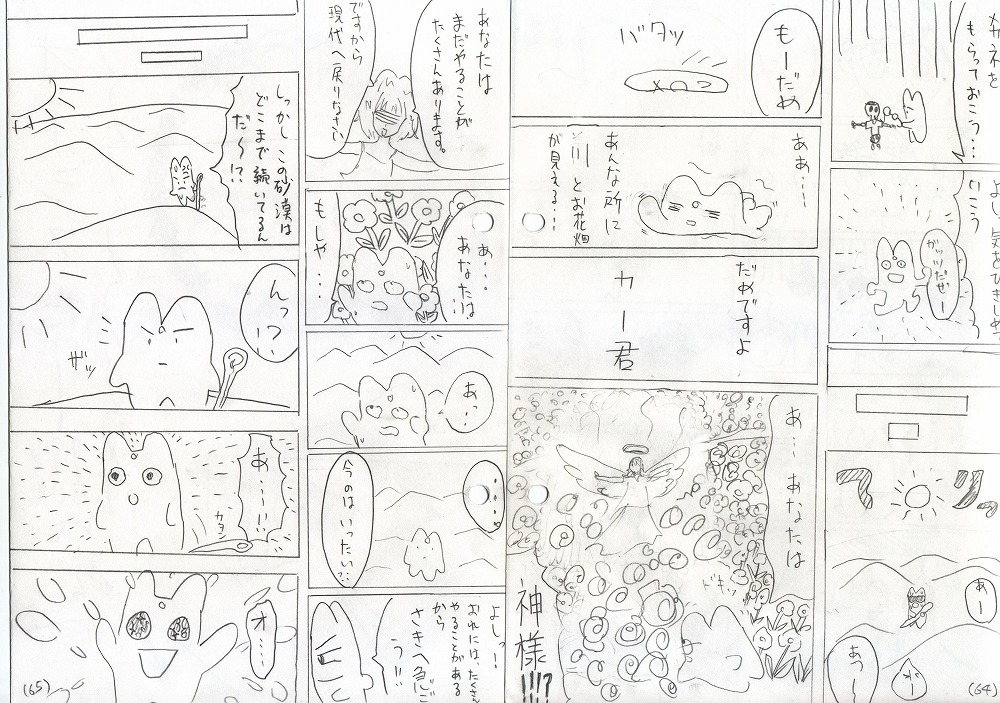 メガネを
もらっておこう・・・
よしっ気をひきしめて
いこう
ガッツだぜー
あー
あっー
(64)
もーだめ
バタッ
ああ・・・
あんな所に
川とお花畑
が見える・・・
だめですよ
カー君
あ・・・あなたは
ドキッ
神様!!!?
あなたは
まだやることが
たくさんあります。
ですから
現代へ戻りなさい
あ・・・
あなたは
もしや・・・
あっ・・
・・・・・
今のはいったい?!
よしっ!
おれには、たくさん
やることがある
から
さきへ急ご
う!!
しっかしこの砂漠は
どこまで続いてるん
だ〜!?
んっ?
ザッ
あ・・・!!
カラン
オ・・・
(65)